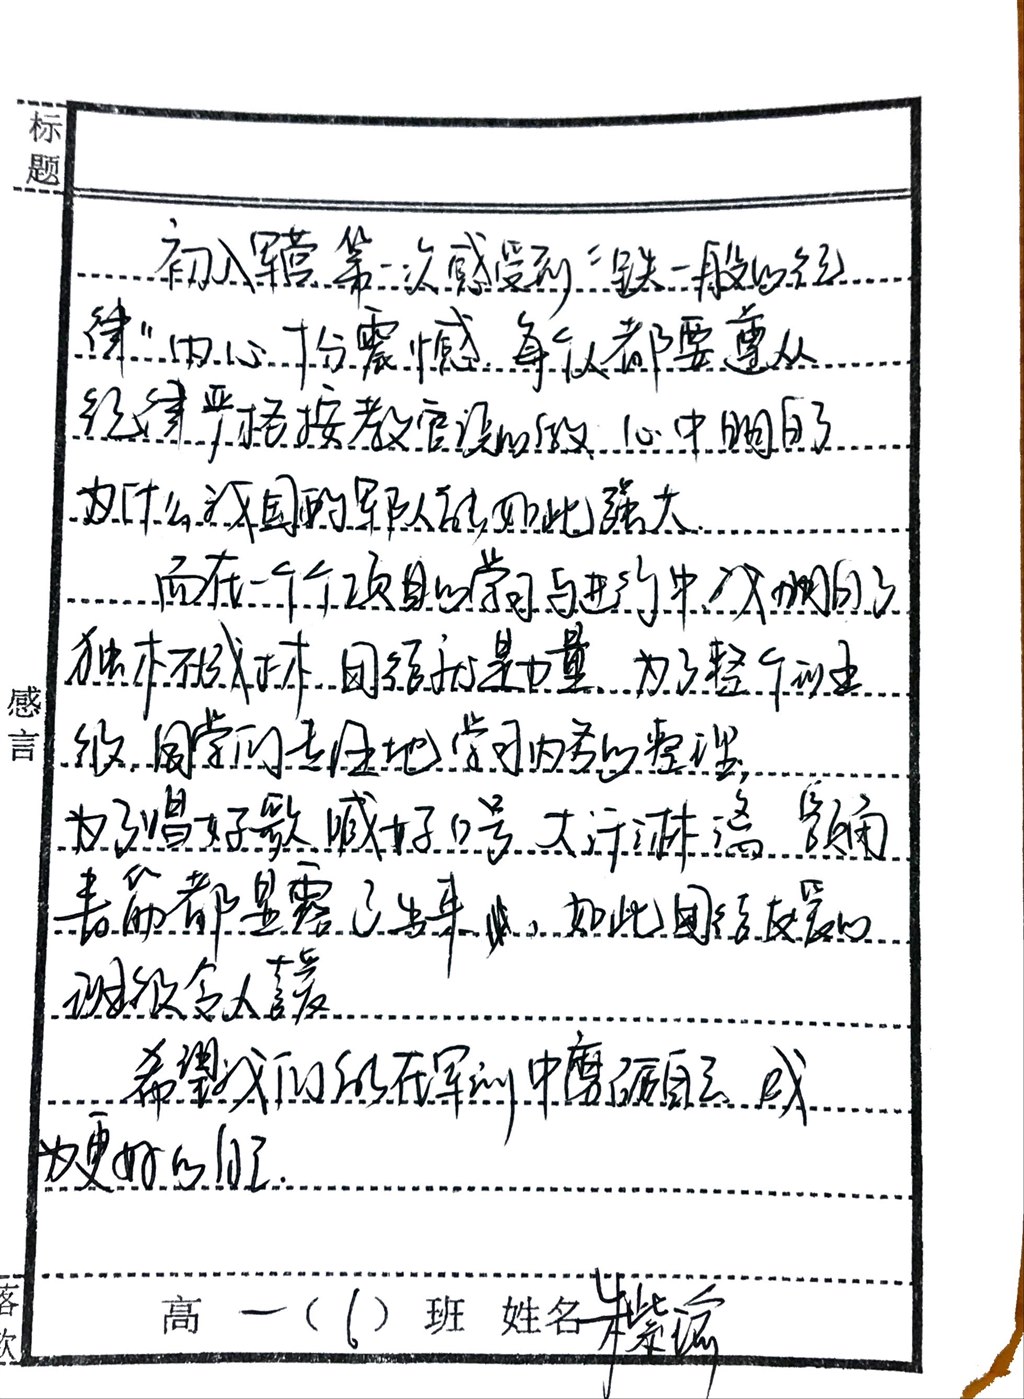 标题
初入军营,第一次感受到“铁一般的纪
律”内心十分震憾,每个人都要遵从
纪律严格按教官说的做,心中明白了
为什么我国的军队能如此强大.
而在一个个项目的学习与进行中,我明白了
独木不成林,团结就是力量.为了整个班
级,同学们专注地学习内务的整理,
为了唱好歌,喊好口号,大汗淋漓,
青筋都显露了出来,如此团结友爱的
班级令人喜爱
感言
希望我们能在军训中磨砺自己,成
为更好的自己.
落款
高一(6)班 姓名朱紫瑜